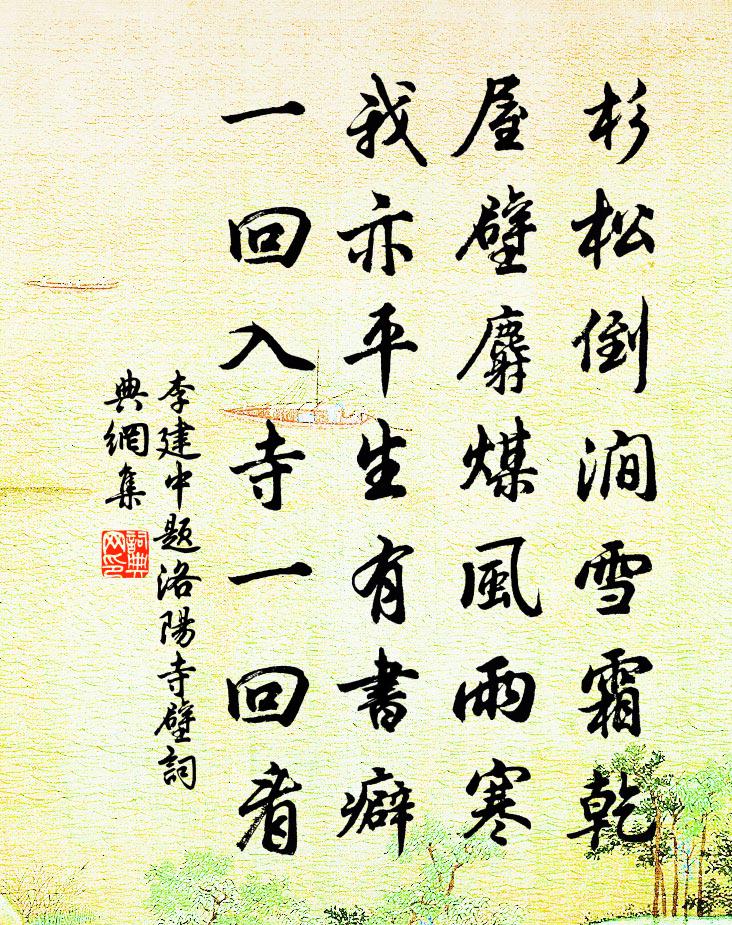 杉松倒澗雪霜乾
屋壁麝煤風雨寒
我亦平生有書癖
一回入寺一回看
李建中題洛陽寺壁詞
典網集
詞典
网印